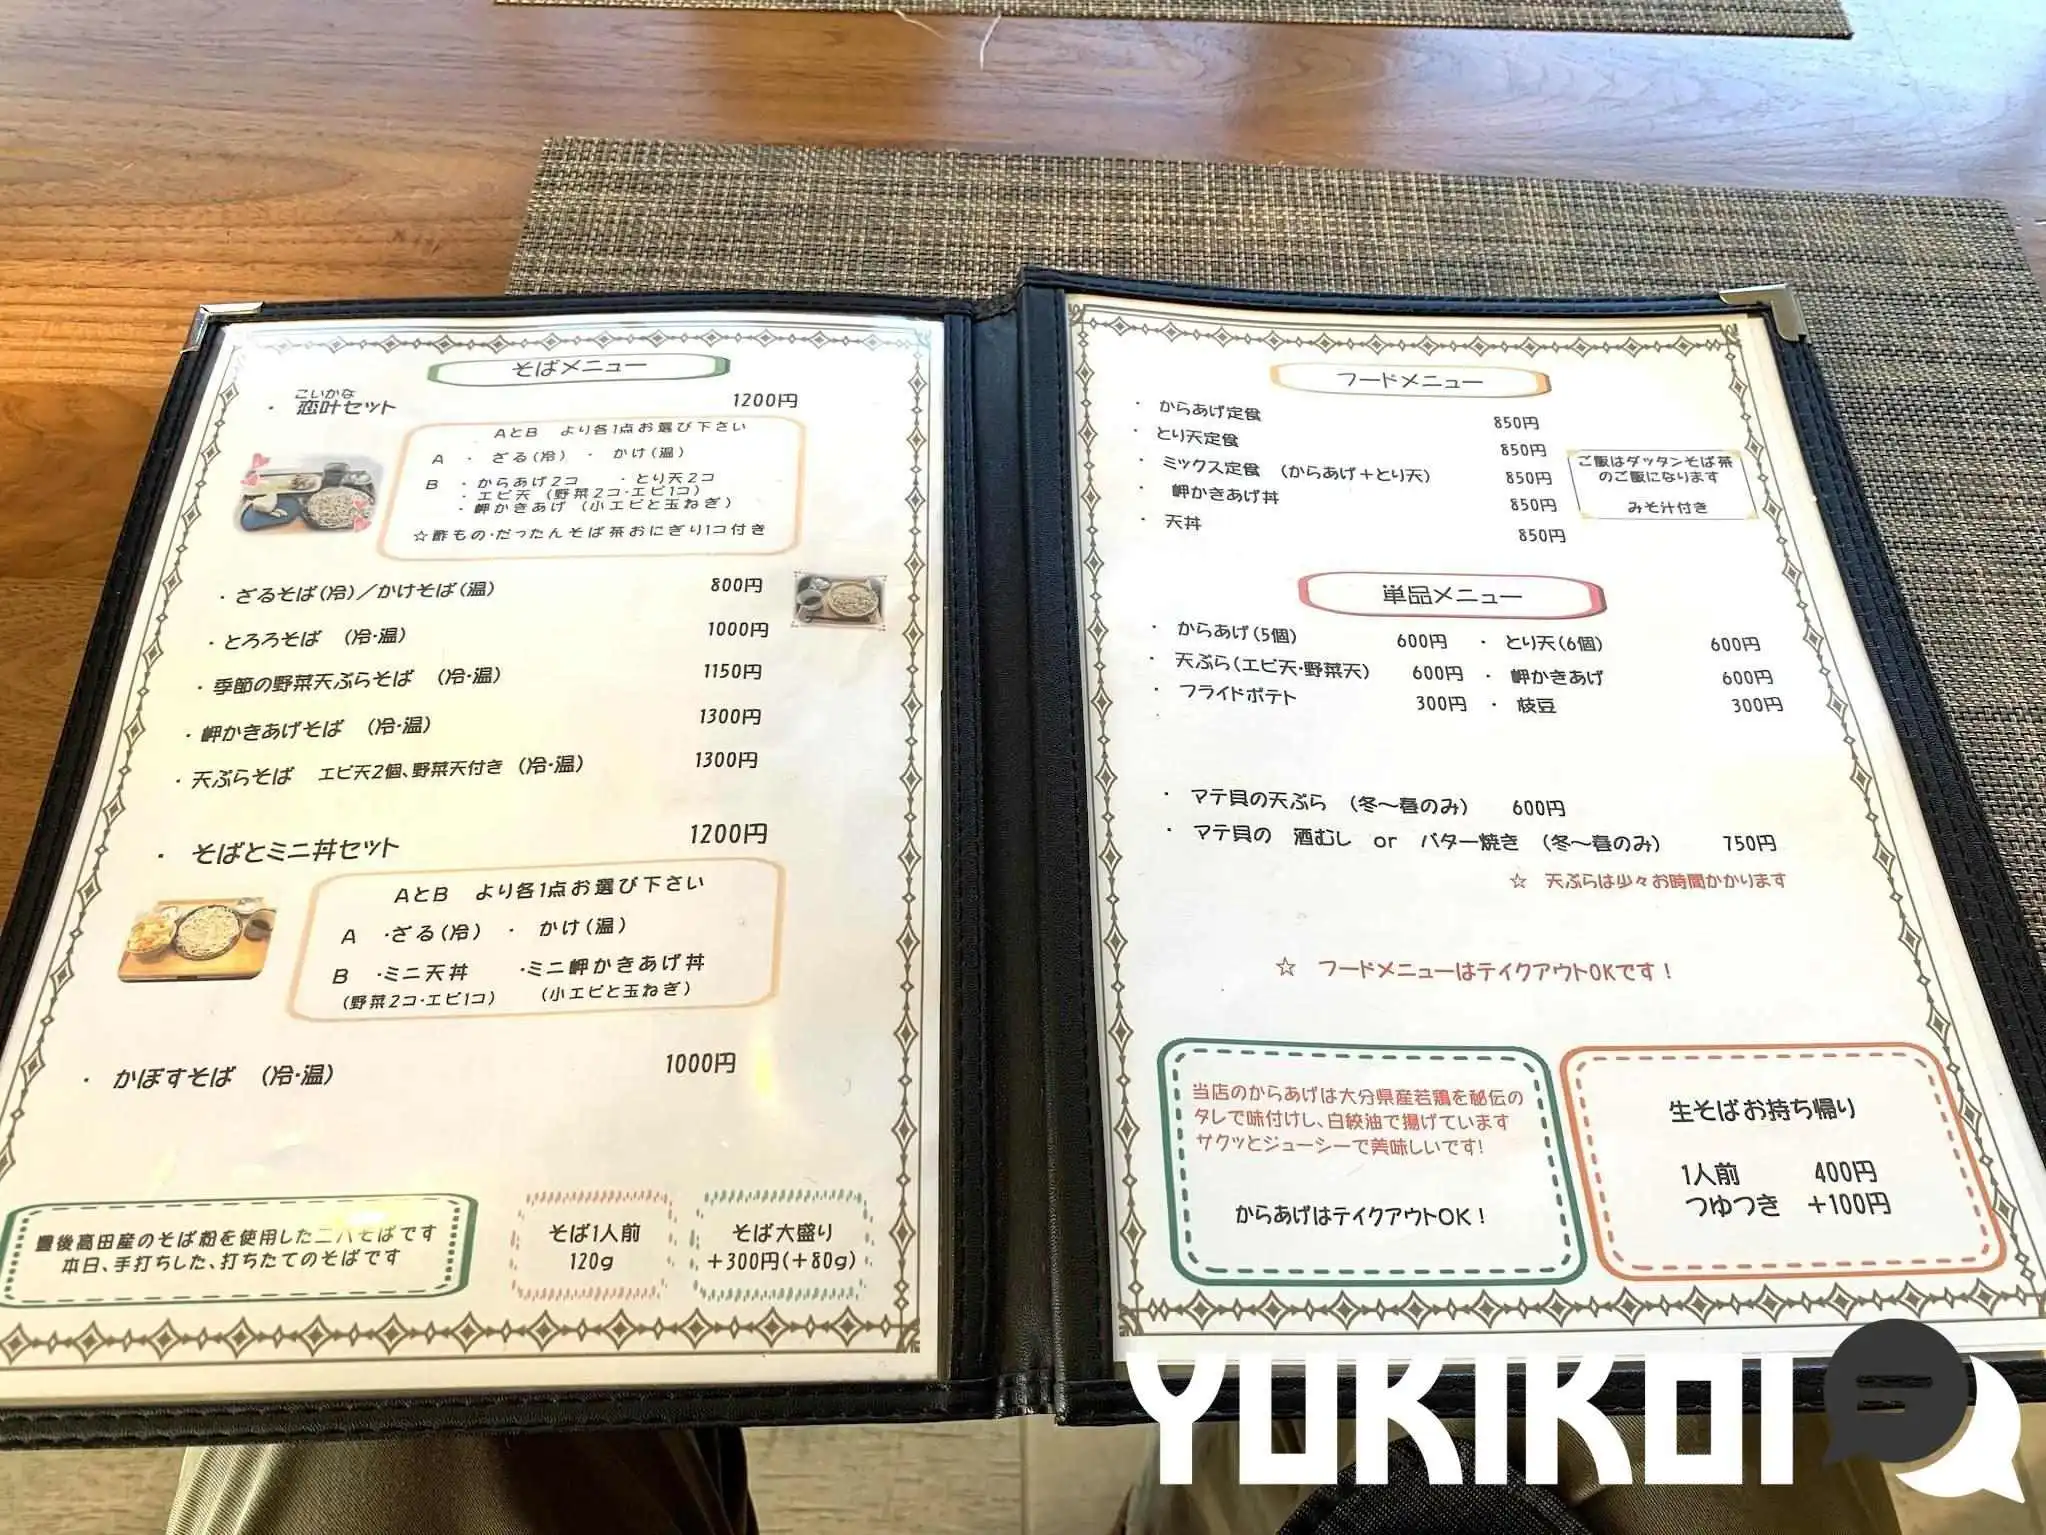 そばメニュー
こいかな
・ 恋叶セット 1200円
AとB より各1点お選び下さい
A ・ ざる(冷) ・ かけ(温)
B ・からあげ2コ ・とり天2コ
・エビ天 (野菜2コ・エビ1コ)
・岬かきあげ (小エビと玉ねぎ)
☆酢もの・だったんそば茶おにぎり1コ付き
・ざるそば(冷)/かけそば(温) 800円
・とろろそば (冷・温) 1000円
・季節の野菜天ぷらそば (冷・温) 1150円
・岬かきあげそば (冷・温) 1300円
・天ぷらそば エビ天2個、野菜天付き (冷・温) 1300円
・ そばとミニ丼セット 1200円
AとB より各1点お選び下さい
A ・ざる(冷) ・ かけ(温)
B ・ミニ天丼 ・ミニ岬かきあげ丼
(野菜2コ・エビ1コ) (小エビと玉ねぎ)
・ かぼすそば (冷・温) 1000円
豊後高田産のそば粉を使用した二八そばです
本日、手打ちした、打ちたてのそばです
そば1人前
120g
そば大盛り
+300円(+80g)
フードメニュー
・ からあげ定食 850円
・ とり天定食 850円
・ ミックス定食 (からあげ+とり天) 850円
・ 岬かきあげ丼 850円
・ 天丼 850円
ご飯はダッタンそば茶
のご飯になります
みそ汁付き
単品メニュー
・ からあげ(5個) 600円 ・ とり天(6個) 600円
・ 天ぷら(エビ天・野菜天) 600円 ・ 岬かきあげ 600円
・ フライドポテト 300円 ・ 枝豆 300円
・ マテ貝の天ぷら (冬〜春のみ) 600円
・ マテ貝の 酒むし or バター焼き (冬〜春のみ) 750円
☆ 天ぷらは少々お時間かかります
☆ フードメニューはテイクアウトOKです！
当店のからあげは大分県産若鶏を秘伝の
タレで味付けし、白絞油で揚げています
サクッとジューシーで美味しいです!
からあげはテイクアウトOK！
生そばお持ち帰り
1人前 400円
つゆつき +100円
YUKIKOI